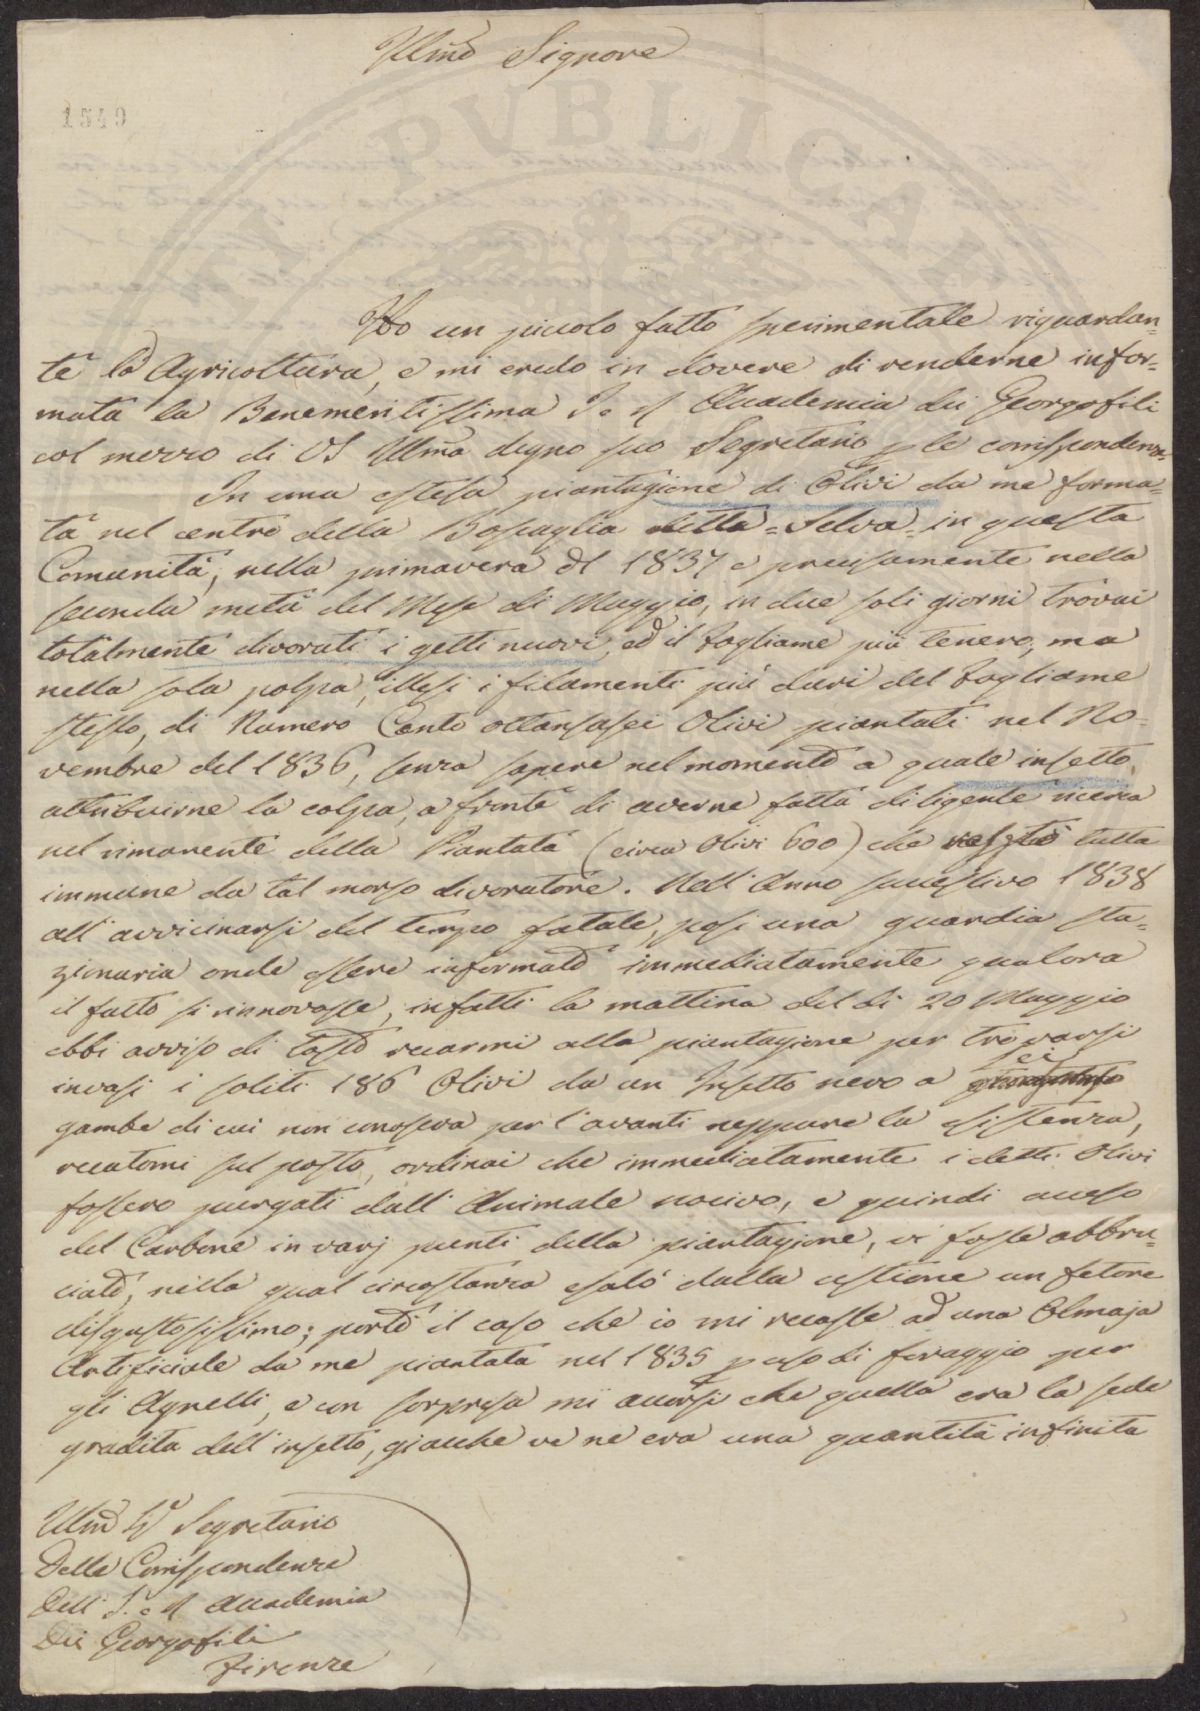 Illmo Signore
1549
Ho un piccolo fatto sperimentale riguardan=
te l'Agricoltura, e mi credo in dovere di renderne infor=
mata la Benemeritissima I. e R. Accademia dei Georgofili
col mezzo di VS Illma degno suo Segretario p le corrispondenze.
In una estesa piantagione di Olivi da me forma=
ta nel centro della Boscaglia detta = Selva = in questa
Comunità, nella primavera del 1837 e precisamente nella
seconda metà del Mese di Maggio, in due soli giorni trovai
totalmente divorati i getti nuovi, ed il fogliame più tenero, ma
nella sola polpa, illesi i filamenti più duri del fogliame
stesso, di Numero Cento ottantasei Olivi piantati nel No=
vembre del 1836, senza sapere nel momento a quale insetto
attribuirne la colpa, a fronte di averne fatta diligente ricerca
nel rimanente della Piantata (circa Olivi 600) che restò tutta
immune da tal morso divoratore. Nell'Anno successivo 1838
all'avvicinarsi del tempo fatale, posi una guardia sta=
zionaria onde essere informato immediatamente qualora
il fatto si rinnovasse, infatti la mattina del di 20 Maggio
ebbi avviso di tosto recarmi alla piantagione per trovarsi
invasi i soliti 186 Olivi da un Insetto nero a sei
gambe di cui non conosceva per l'avanti neppure la esistenza,
recatomi sul posto, ordinai che immediatamente i detti Olivi
fossero purgati dall'Animale nocivo, e quindi acceso
del Carbone in varj punti della piantagione, vi fosse abbru=
ciato, nella qual circostanza esalò dalla ustione un fetore
disgustosissimo; portò il caso che io mi recassi ad una Olmaja
Artificiale da me piantata nel 1835 p uso di foraggio per
gli Agnelli, e con sorpresa mi accorsi che quella era la sede
gradita dell'insetto, giacche ve ne era una quantità infinita
Illmo Sig Segretario
Delle Corrispondenze
Dell'I. e R. Accademia
Dei Georgofili
Firenze